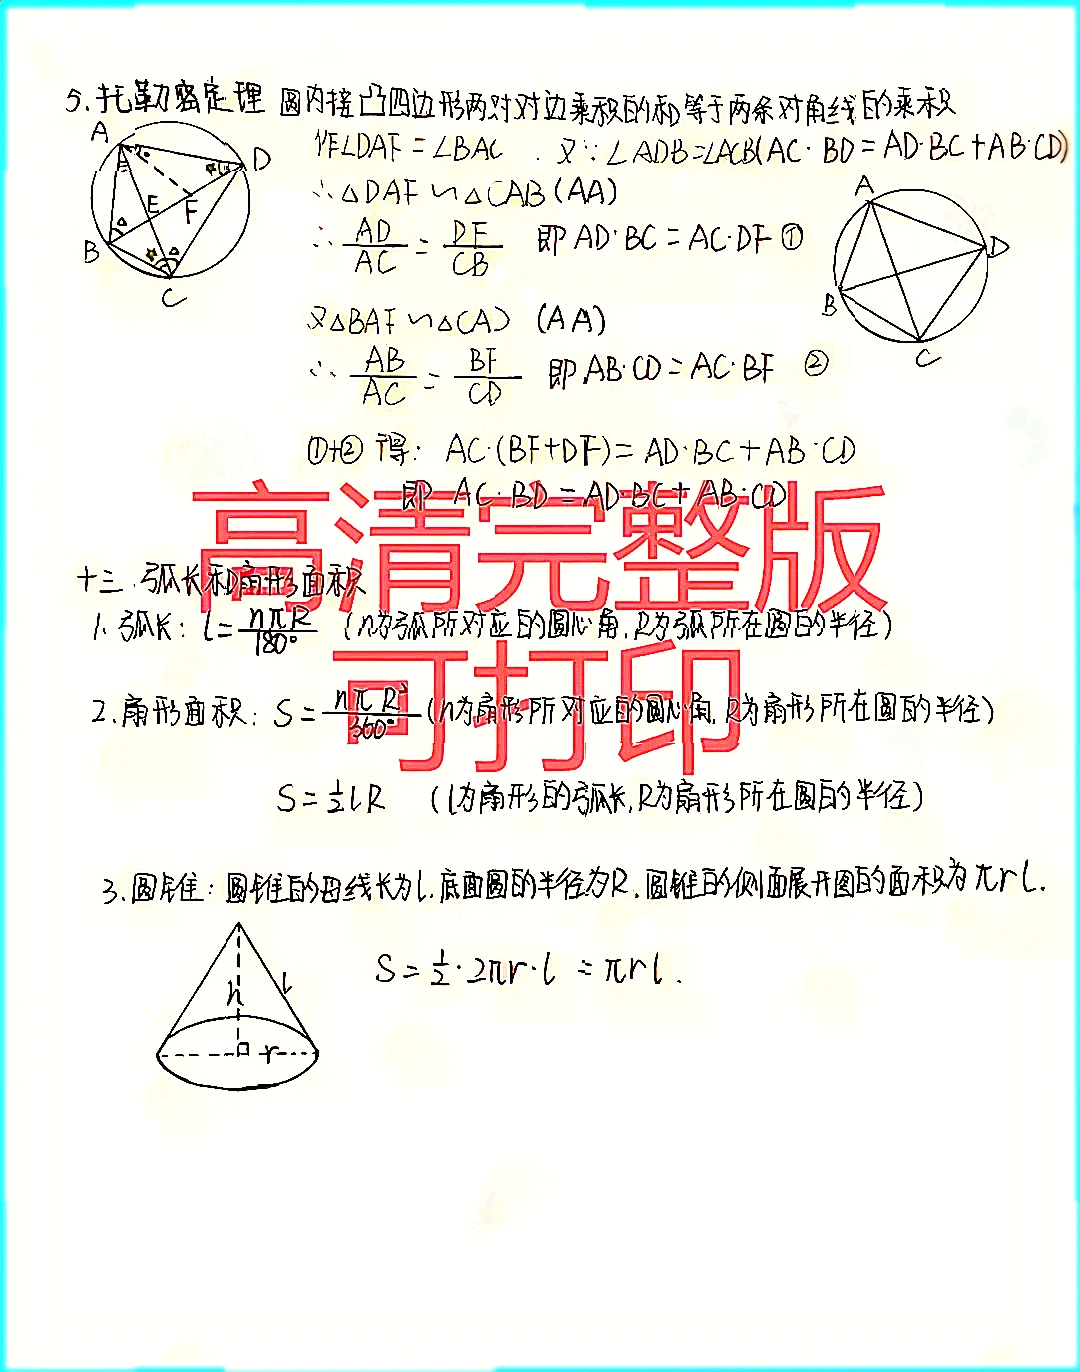 5.托勒密定理 圆内接凸四边形两对对边乘积的和等于两条对角线的乘积
作∠DAF=∠BAC.又∵∠ADB=∠ACB(AC·BD=AD·BC+AB·CD)
∴△DAF∽△CAB(AA)
∴AD/AC=DF/CB 即AD·BC=AC·DF①
又△BAF∽△CAD(AA)
∴AB/AC=BF/CD 即AB·CD=AC·BF ②
①+②得:AC·(BF+DF)=AD·BC+AB·CD
即 AC·BD=AD·BC+AB·CD
A
D
E
F
B
C
A
D
B
C
高清完整版
可打印
十三.弧长和扇形面积
1.弧长:l=nπR/180° (n为弧所对应的圆心角,R为弧所在圆的半径)
2.扇形面积:S=nπR²/360°(n为扇形所对应的圆心角,R为扇形所在圆的半径)
S=½lR (l为扇形的弧长,R为扇形所在圆的半径)
3.圆锥:圆锥的母线长为l,底面圆的半径为R,圆锥的侧面展开图的面积为πrl.
S=½·2πr·l=πrl.
h
l
r